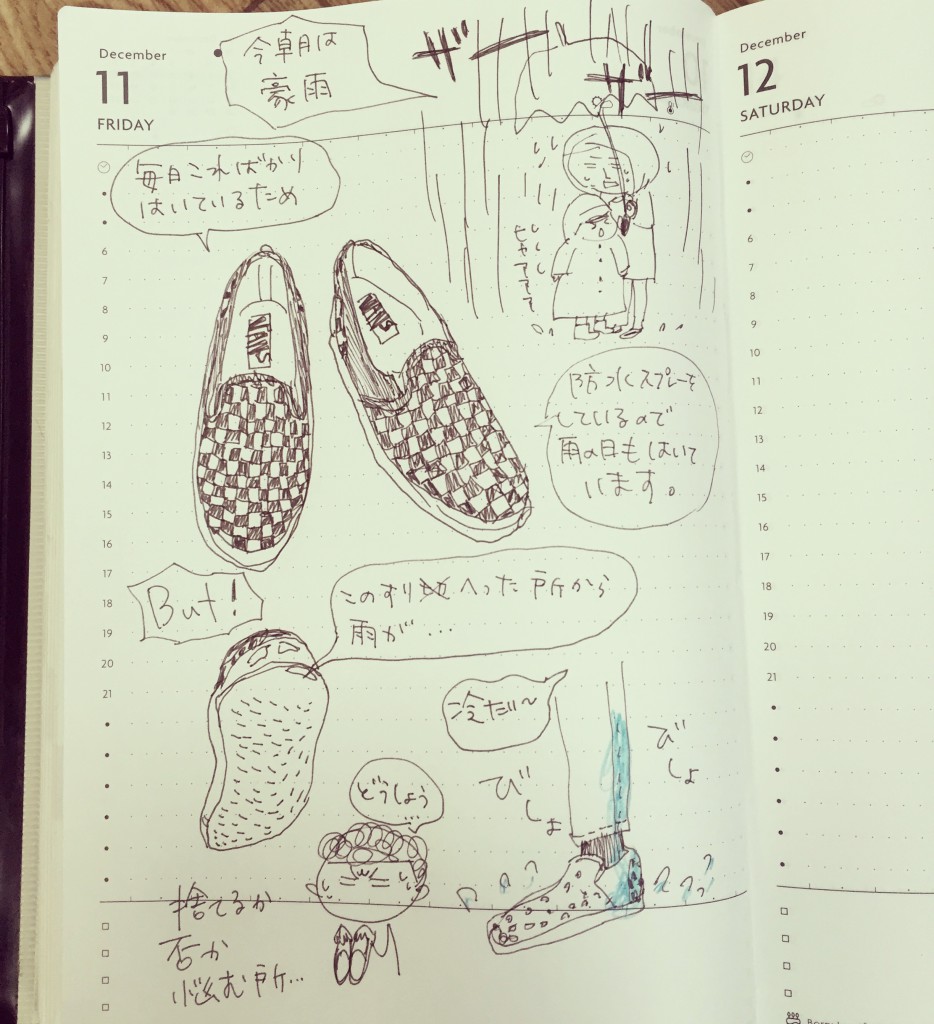 December
11
FRIDAY
今朝は
豪雨
ザーー
ザーー
December
12
SATURDAY
毎日こればかり
はいているため
ヒャーーー
VANS
VANS
防水スプレーを
しているので
雨の日もはいて
います。
But!
このすり減った所から
雨が…
冷たい〜
びしょ
びしょ
どうしよう
…
捨てるか
否か
悩む所…
6
7
8
9
10
11
12
13
14
15
16
17
18
19
20
21
6
7
8
9
10
11
12
13
14
15
16
17
18
19
20
21